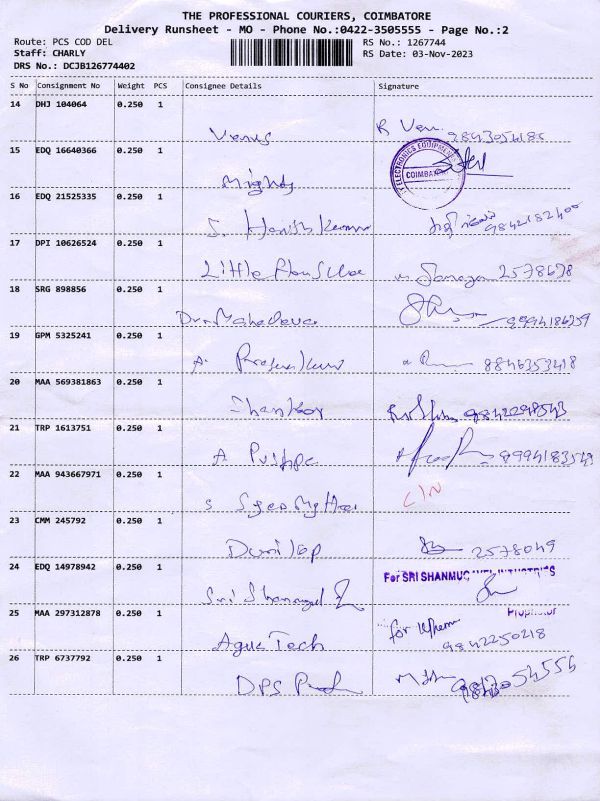 THE PROFESSIONAL COURIERS, COIMBATORE
Delivery Runsheet - MO - Phone No.:0422-3505555 - Page No.:2
Route: PCS COD DEL RS No.: 1267744
Staff: CHARLY RS Date: 03-Nov-2023
DRS No.: DCJB126774402
S No Consignment No Weight PCS Consignee Details Signature
14 DHJ 104064 0.250 1
Venus R Ven
15 EDQ 16640366 0.250 1
Mighty ELECTRONICS COIMBATORE
16 EDQ 21525335 0.250 1
S. Harish Kumar 9842182400
17 DPI 10626524 0.250 1
Little 2578678
18 SRG 898856 0.250 1
Dr. Mahadeva 9994186359
19 GPM 5325241 0.250 1
A. 8846353418
20 MAA 569381863 0.250 1
Shankar 9842298543
21 TRP 1613751 0.250 1
A Pushpa 8994183549
22 MAA 943667971 0.250 1
S
23 CMM 245792 0.250 1
Dunlop 2578049
24 EDQ 14978942 0.250 1
Sri For SRI SHANMUGAVEL INDUSTRIES
Proprietor
25 MAA 297312878 0.250 1
Agus Tech for 9842250218
26 TRP 6737792 0.250 1
DPS